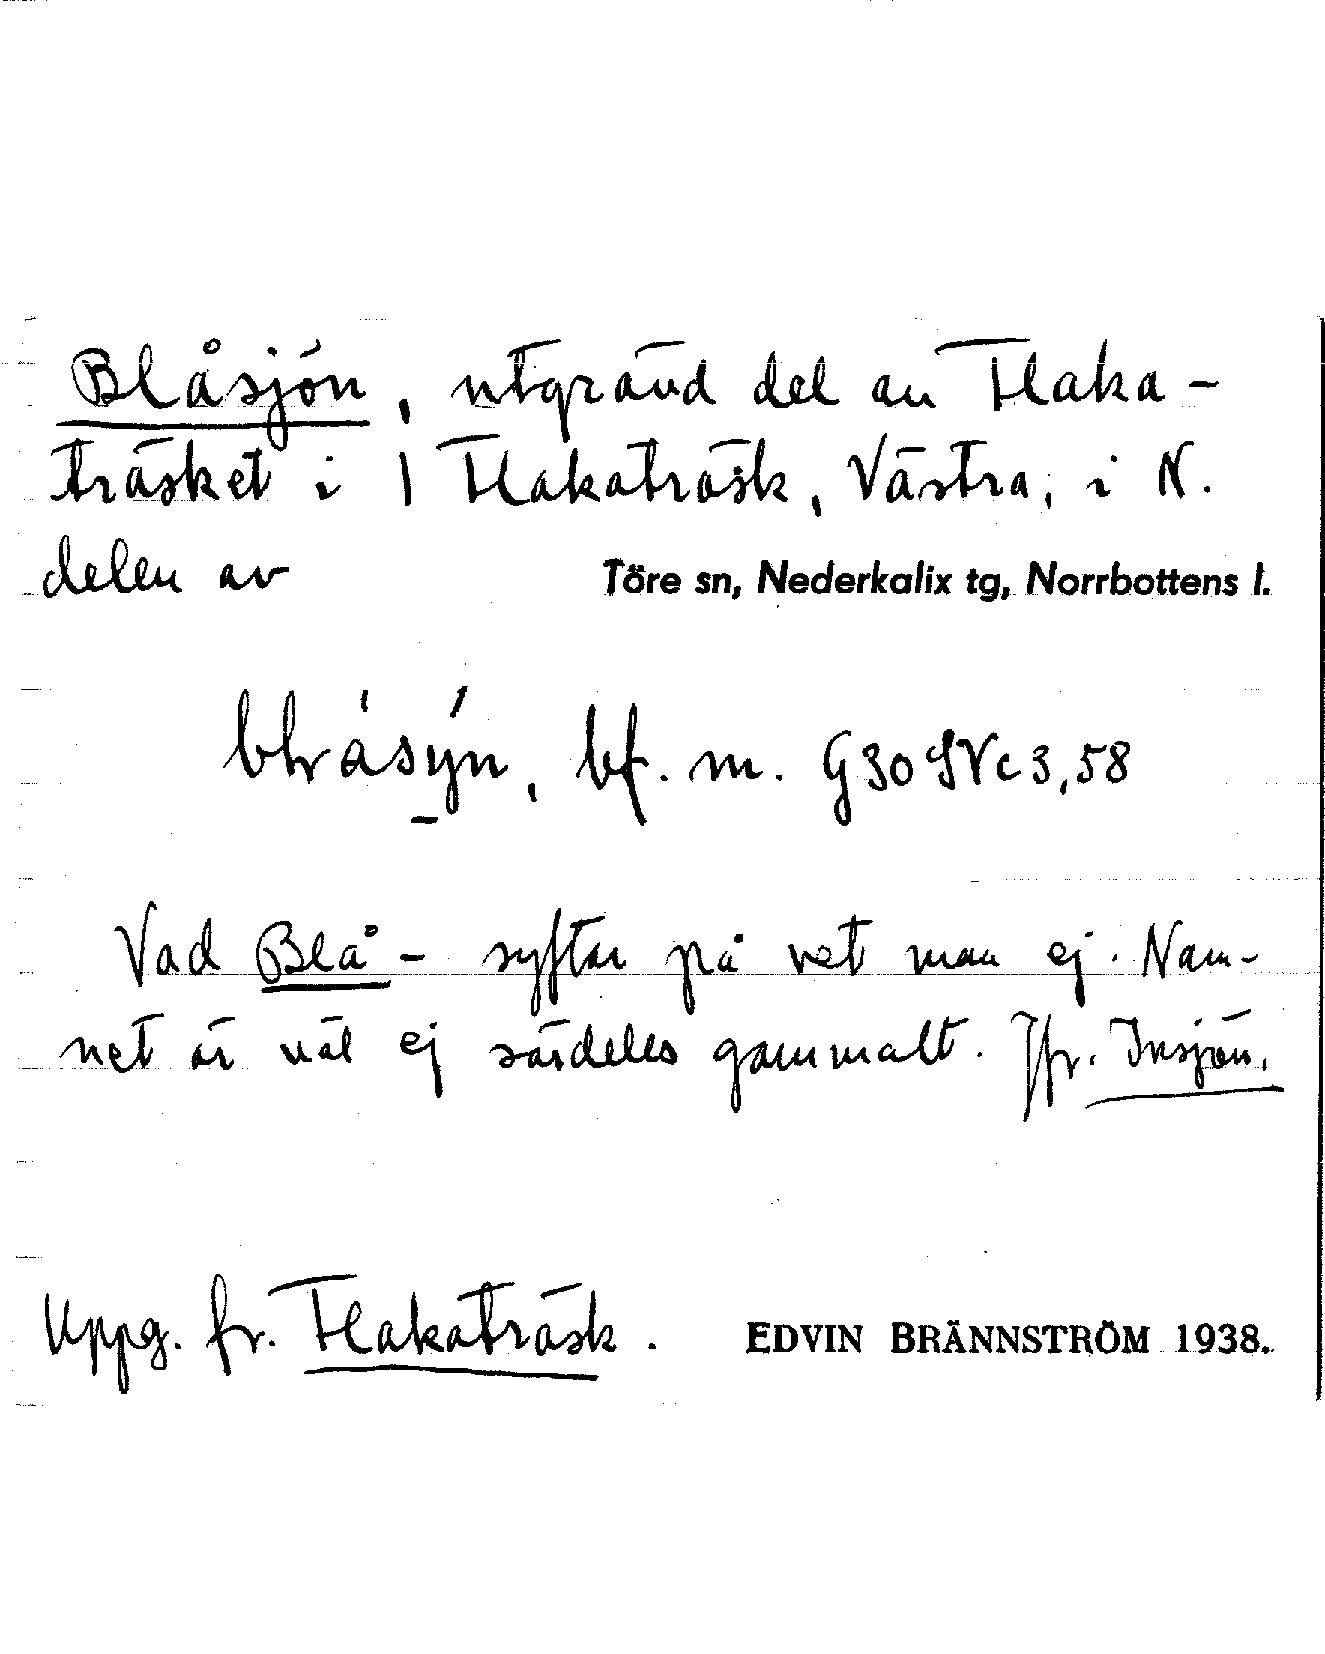 Blåsjön, utgrävd del av Flaka-
träsket i 1 Flakaträsk, Västra, i N.
delen av Töre sn, Nederkalix tg, Norrbottens l.
bf. m. G30SVc3,58
Vad Blå- syftar på vet man ej. Nam-
net är väl ej särdeles gammalt. Jfr. Insjön.
Uppg. fr. Flakaträsk. EDVIN BRÄNNSTRÖM 1938.